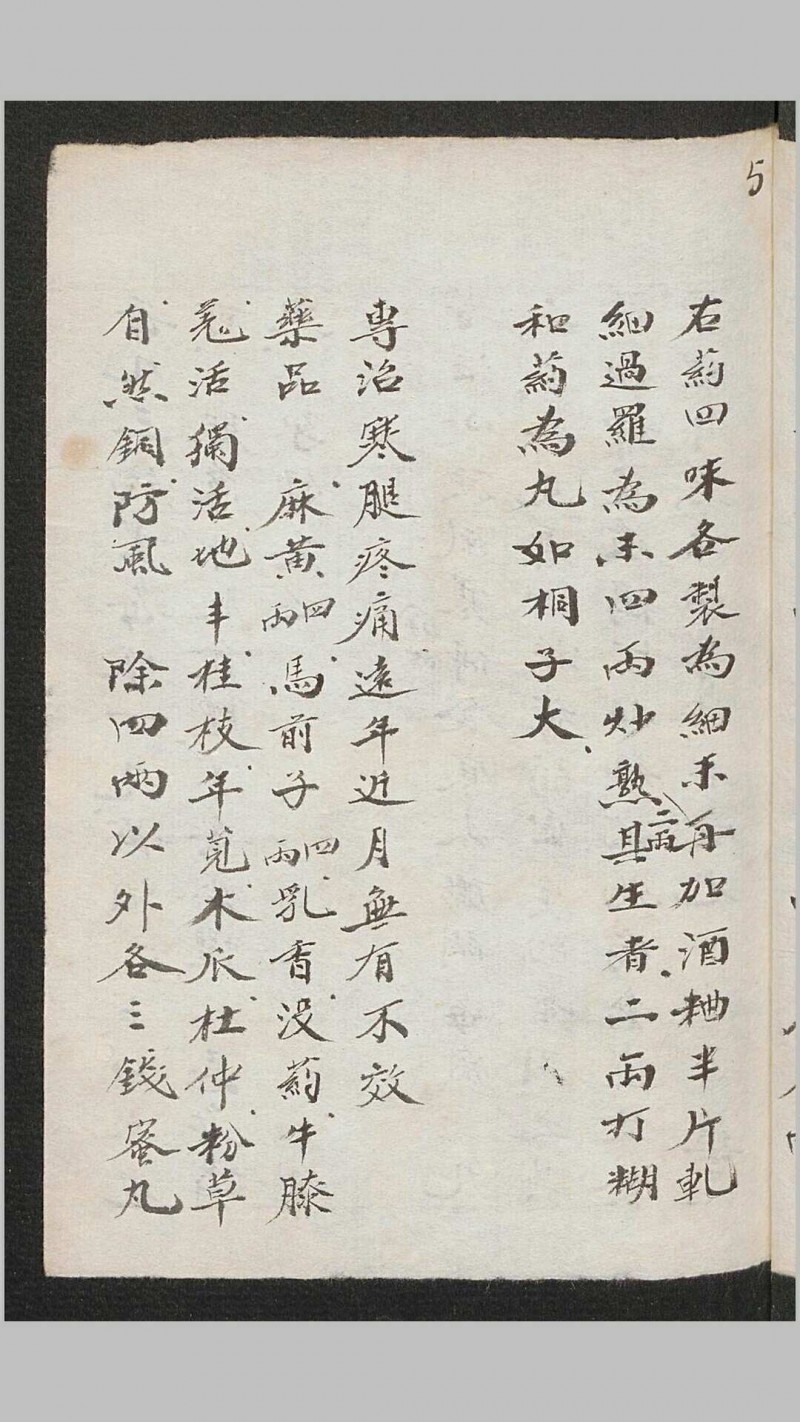 5
右葯四味各製為細末再加酒糟半片軋
細過羅為末四兩炒熟二兩其生者二兩打糊
和葯為丸如桐子大
専治寒腿疼痛遠年近月無有不效
藥品 麻黄四兩馬前子四兩乳香没葯牛膝
羌活獨活地丰桂枝年見木爪杜仲粉草
自然銅防風 除四兩以外各三錢蜜丸